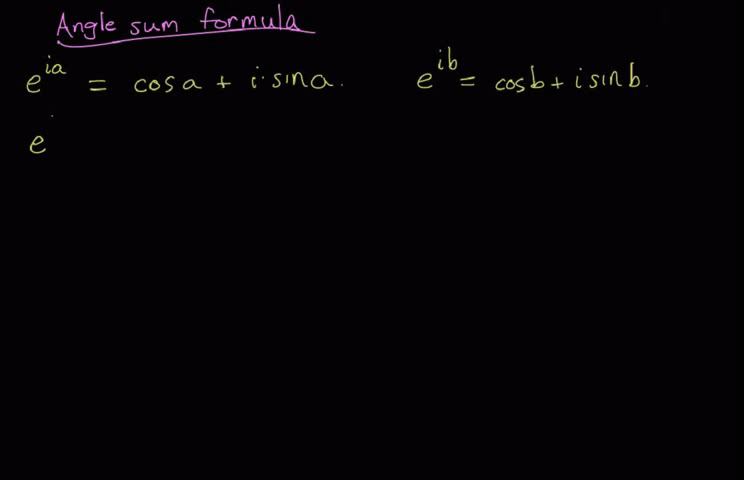 Angle sum formula
e^{ia} = cos a + i·sin a. e^{ib} = cos b + i sin b.
e